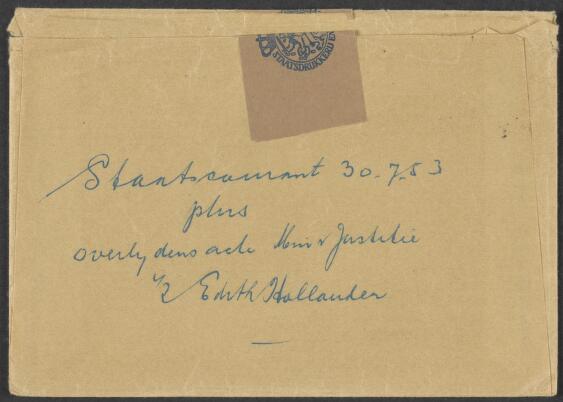 STAATSDRUKKERIJ EN
Staatscourant 30-7-53
plus
overlydens acte Min v Justitie
Edith Hollander